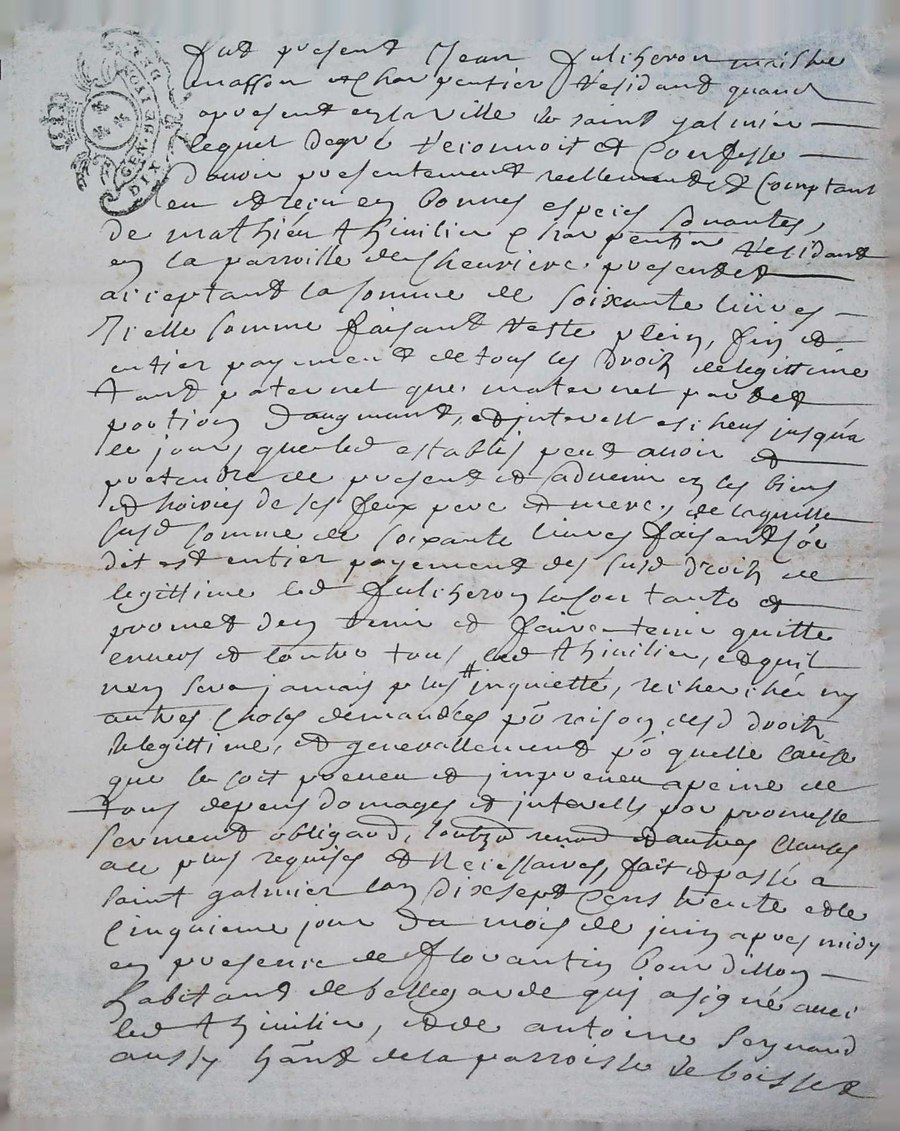 GEN. DE LYON
DIX D
fut present Jean fulcheron maistre
masson et charpentier residant quand
apresent en la ville de saint galmier
lequel de gré reconnoit et confesse
d'avoir presentement reellement et comptant
eu et receu en bonnes especes sonantes,
de mathieu thivilier charpentier residant
en la parroisse de chevriere present et
acceptant la somme de soixante livres
Icelle somme faisant reste plein, fin et
entier payement de tous les droitz de legittime
tant paternel que maternel part et
portion d'augment, et interest escheus jusqu'a
ce jour, que led establis peut avoir et
pretendre de present et advenir en les biens
et hoiries de ses feux pere et mere, de laquelle
susd somme de soixante livres faisant co̅e
dit est entier payement des susd droitz de
legittime led fulcheron sa con tante et
promet d'en tenir et faire tenir quitte
envers et contre tous led thivilier, et quil
n'en sera jamais plus inquietté, recherché ny
autres choses demandées po̅ raison desd droitz
de legittime, et generallement po̅ quelle cause
que ce soit preveu et impreveu a peine de
tous depens domages et interests par promesse
serment obligaon, soubzon renon et autres clauses
ace plus requises et necessaires, fait et passé a
saint galmier l'an dix sept cens trente et le
cinquieme jour du mois de juin apres midy
en presence de florantin bourdillon
habitant de bellegarde qui a signé avec
led thivilier, et de antoine seynaud
aussy ha̅nt de la parroisse de boisset